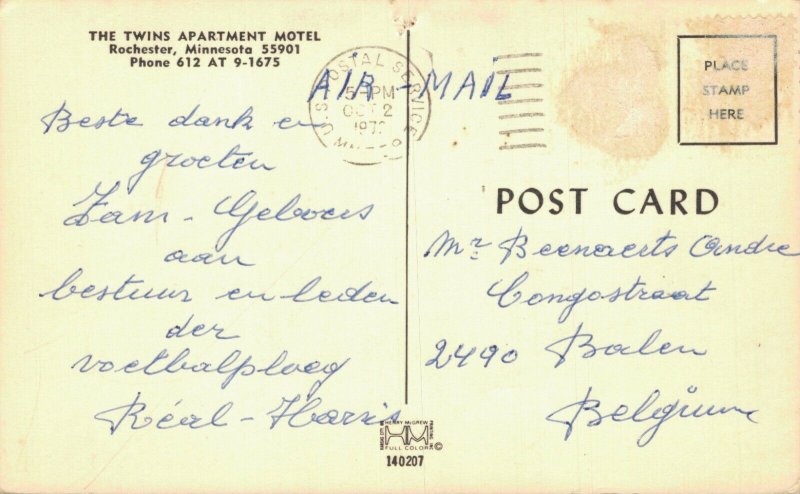 THE TWINS APARTMENT MOTEL
Rochester, Minnesota 55901
Phone 612 AT 9-1675
AIR-MAIL
U.S. POSTAL SERVICE
PM
OCT 2
PLACE
STAMP
HERE
Beste dank en
groeten
Fam-Geboers
aan
bestuur en leden
der
voetbalploeg
Réal-Harris
POST CARD
Mr Beenaerts Andre
Congostraat
2490 Balen
Belgium
HENRY McGREW
PRINTING, INC.
KANSAS CITY, MO.
HM
FULL COLOR
©
140207